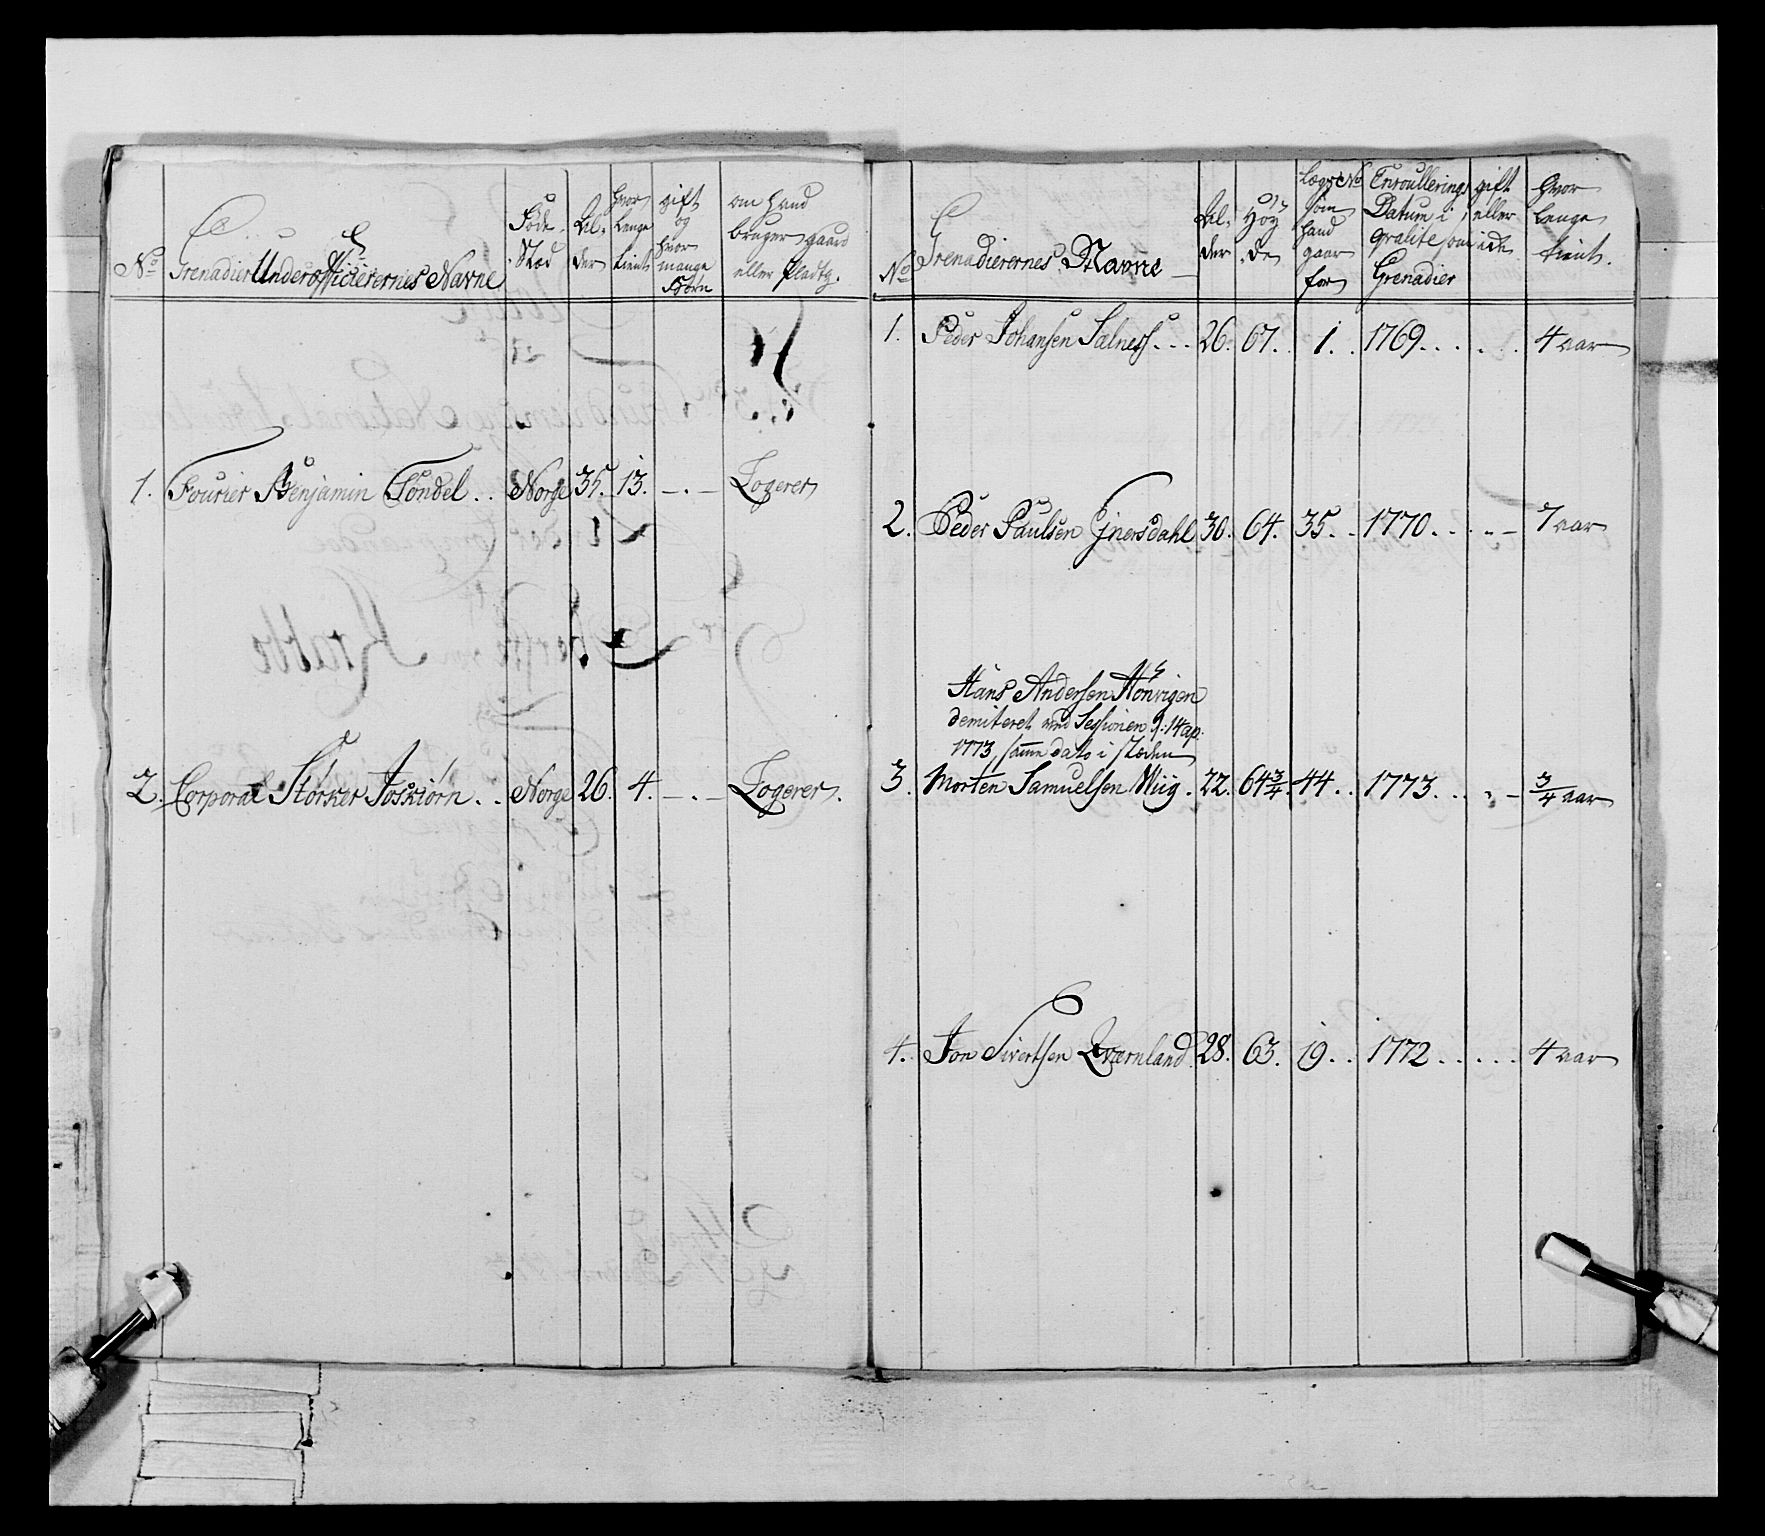 No
Grenadier Underofficierernes Navne
Föde-
Stæd
Al-
der
hvor
Længe
tient
gift
og
hvor
mange
Börn
om hand
bruger gaard
eller pladtz.
1. Fourier Benjamin Töndel . . Norge 35. 13. – . – Logerer
2. Corporal Störker Joskiörn . . Norge 26. 4. – . – Logerer.
No
Grenadierernes Navne
Al-
der
Höy-
de
Lægs No
som
hand
gaar
for
Enroullerings
Datum i
qvalite som
Grenadier
gift
eller
ide
hvor
længe
tient.
1. Peder Johansen Salness . . . 26. 67. 1. . 1769. . . . . . 4 aar
2. Peder Paulsen Ejnersdahl 30. 64. 35. . 1770. . . . – 7 aar
Hans Andersen Hönvigen
demiteret ved Sessionen d: 14 ap:
1773, samme dato i stæden
3. Morten Samuelsen Wiig . 22. 64 3/4. 44. . 1773. . . . – 3/4 aar
4. Jon Sivertsen Qværnland 28. 63. 19. . 1772 . . . . . 4 aar